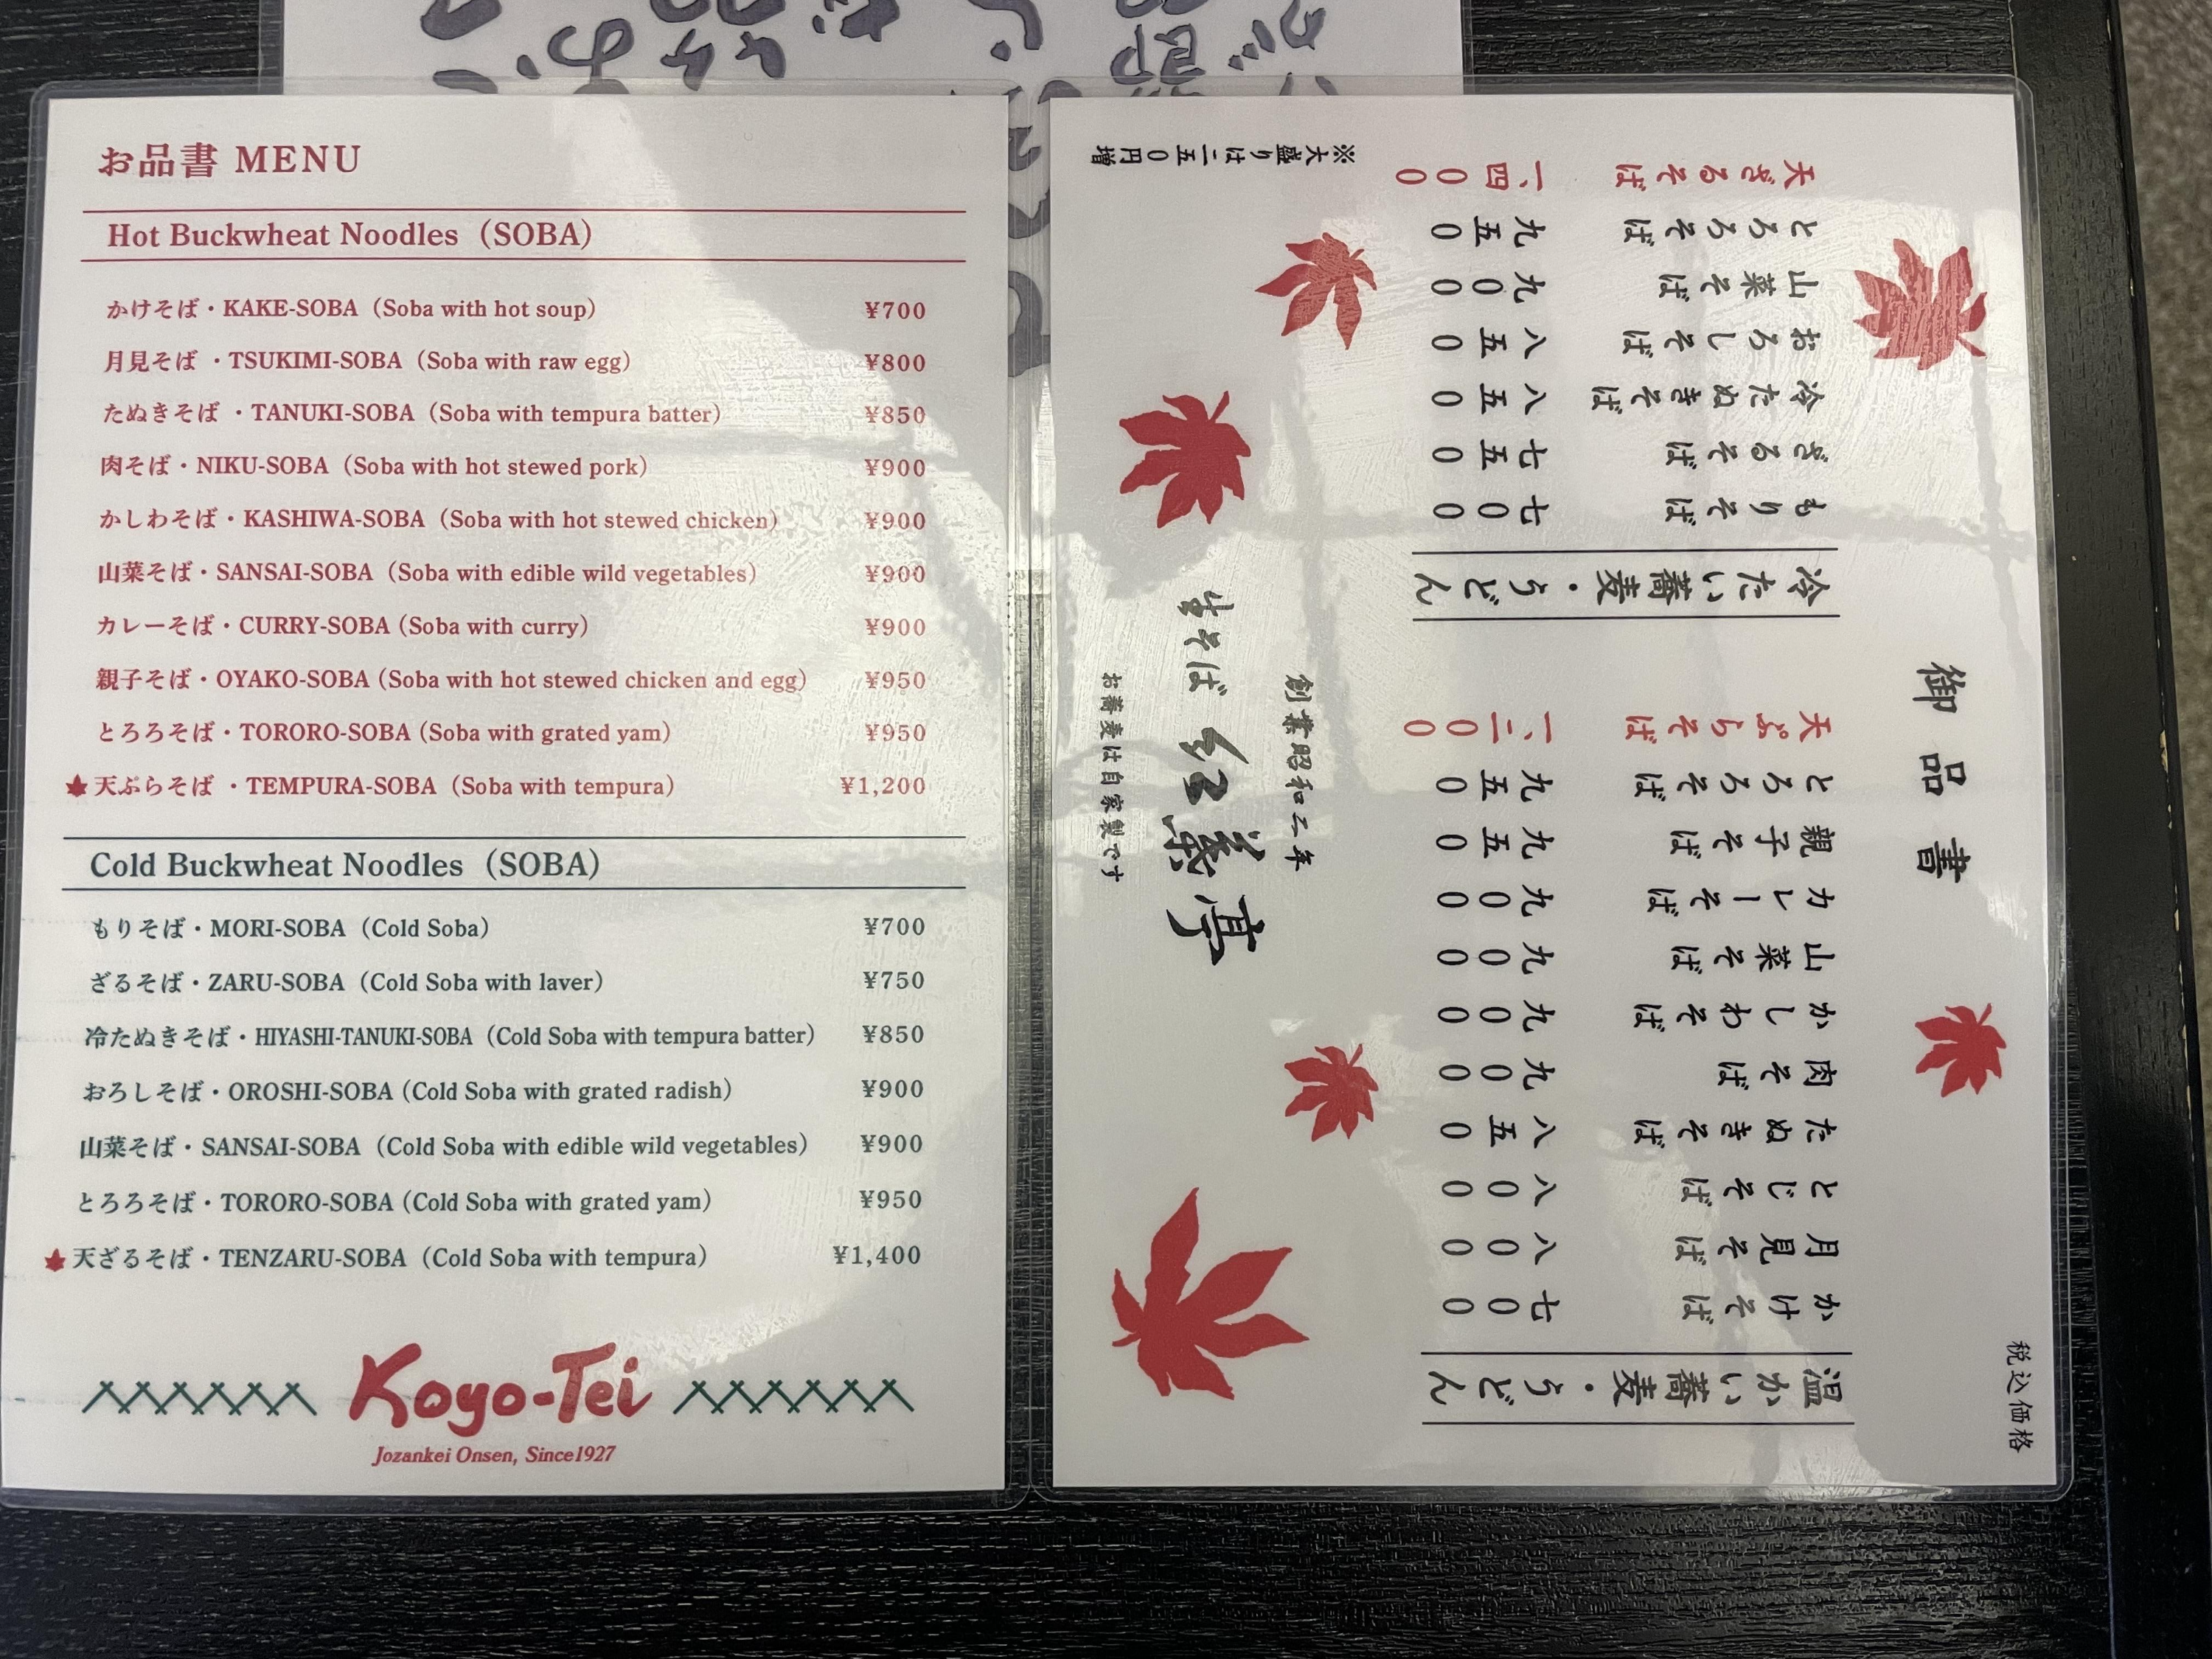 お品書 MENU
Hot Buckwheat Noodles（SOBA）
かけそば・KAKE-SOBA（Soba with hot soup） ¥700
月見そば ・TSUKIMI-SOBA（Soba with raw egg） ¥800
たぬきそば ・TANUKI-SOBA（Soba with tempura batter） ¥850
肉そば・NIKU-SOBA（Soba with hot stewed pork） ¥900
かしわそば・KASHIWA-SOBA（Soba with hot stewed chicken） ¥900
山菜そば・SANSAI-SOBA（Soba with edible wild vegetables） ¥900
カレーそば・CURRY-SOBA (Soba with curry) ¥900
親子そば・OYAKO-SOBA (Soba with hot stewed chicken and egg) ¥950
とろろそば・TORORO-SOBA (Soba with grated yam) ¥950
天ぷらそば ・TEMPURA-SOBA（Soba with tempura） ¥1,200
Cold Buckwheat Noodles（SOBA）
もりそば・MORI-SOBA（Cold Soba） ¥700
ざるそば・ZARU-SOBA（Cold Soba with laver） ¥750
冷たぬきそば・HIYASHI-TANUKI-SOBA（Cold Soba with tempura batter） ¥850
おろしそば・OROSHI-SOBA (Cold Soba with grated radish) ¥900
山菜そば・SANSAI-SOBA（Cold Soba with edible wild vegetables） ¥900
とろろそば・TORORO-SOBA (Cold Soba with grated yam) ¥950
天ざるそば・TENZARU-SOBA（Cold Soba with tempura） ¥1,400
Koyo-Tei
Jozankei Onsen, Since1927
税込価格
御品書
温かい蕎麦・うどん
かけそば 七〇〇
月見そば 八〇〇
とじそば 八〇〇
たぬきそば 八五〇
肉そば 九〇〇
かしわそば 九〇〇
山菜そば 九〇〇
カレーそば 九〇〇
親子そば 九五〇
とろろそば 九五〇
天ぷらそば 一、二〇〇
冷たい蕎麦・うどん
もりそば 七〇〇
ざるそば 七五〇
冷たぬきそば 八五〇
おろしそば 八五〇
山菜そば 九〇〇
とろろそば 九五〇
天ざるそば 一、四〇〇
※大盛りは二五〇円増
創業昭和二年
生そば 紅葉亭
お蕎麦は自家製です